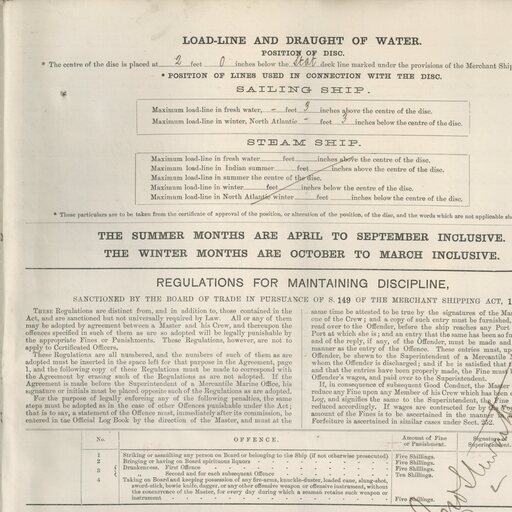 LOAD-LINE AND DRAUGHT OF WATER.
POSITION OF DISC.
* The centre of the disc is placed at 2 feet 0 inches below the Stat deck line marked under the provisions of the Merchant Ship
* POSITION OF LINES USED IN CONNECTION WITH THE DISC.
SAILING SHIP.
Maximum load-line in fresh water, - feet 3 inches above the centre of the disc.
Maximum load-line in winter, North Atlantic - feet 3 inches below the centre of the disc.
STEAM SHIP.
Maximum load-line in fresh water feet inches above the centre of the disc.
Maximum load-line in Indian summer feet inches above the centre of the disc.
Maximum load-line in summer the centre of the disc.
Maximum load-line in winter feet inches below the centre of the disc.
Maximum load-line in North Atlantic winter feet inches below the centre of the disc.
* These particulars are to be taken from the certificate of approval of the position, or alteration of the position, of the disc, and the words which are not applicable sh
THE SUMMER MONTHS ARE APRIL TO SEPTEMBER INCLUSIVE.
THE WINTER MONTHS ARE OCTOBER TO MARCH INCLUSIVE.
REGULATIONS FOR MAINTAINING DISCIPLINE,
SANCTIONED BY THE BOARD OF TRADE IN PURSUANCE OF S. 149 OF THE MERCHANT SHIPPING ACT, 1
THESE Regulations are distinct from, and in addition to, those contained in the
Act, and are sanctioned but not universally required by Law. All or any of them
may be adopted by agreement between a Master and his Crew, and thereupon the
offences specified in such of them as are so adopted will be legally punishable by
the appropriate Fines or Punishments. These Regulations, however, are not to
apply to Certificated Officers.
These Regulations are all numbered, and the numbers of such of them as are
adopted must be inserted in the space left for that purpose in the Agreement, page
1, and the following copy of these Regulations must be made to correspond with
the Agreement by erasing such of the Regulations as are not adopted. If the
Agreement is made before the Superintendent of a Mercantile Marine Office, his
signature or initials must be placed opposite such of the Regulations as are adopted.
For the purpose of legally enforcing any of the following penalties, the same
steps must be adopted as in the case of other offences punishable under the Act;
that is to say, a statement of the Offence must, immediately after its commission, be
entered in the Official Log Book by the direction of the Master, and must at the
same time be attested to be true by the signatures of the Mas
one of the Crew; and a copy of such entry must be furnished,
read over to the Offender, before the ship reaches any Port
Port at which she is; and an entry that the same has been so fur
and of the reply, if any, of the Offender, must be made and
manner as the entry of the Offence. These entries must, up
Offence, be shewn to the Superintendent of a Mercantile
whom the Offender is discharged; and if he is satisfied that
and that the entries have been properly made, the Fine must
Offender's wages, and paid over to the Superintendent.
If, in consequence of subsequent Good Conduct, the Master
reduce any Fine upon any Member of his Crew which has been
Log, and signifies the same to the Superintendent, the Fine
reduced accordingly. If wages are contracted for by the
amount of the Fines is to be ascertained in the manner in
Forfeiture is ascertained in similar cases under Sect.
No. OFFENCE. Amount of Fine or Punishment. Signature of Superintendent.
1 Striking or assaulting any person on Board or belonging to the Ship (if not otherwise prosecuted) Five Shillings.
2 Bringing or having on Board spirituous liquors Five Shillings.
3 Drunkenness. First Offence Five Shillings.
Second and for each subsequent Offence Ten Shillings.
4 Taking on Board and keeping possession of any fire-arms, knuckle-duster, loaded cane, slung-shot,
sword-stick, bowie knife, dagger, or any other offensive weapon or offensive instrument, without
the concurrence of the Master, for every day during which a seaman retains such weapon or
instrument Five Shillings.